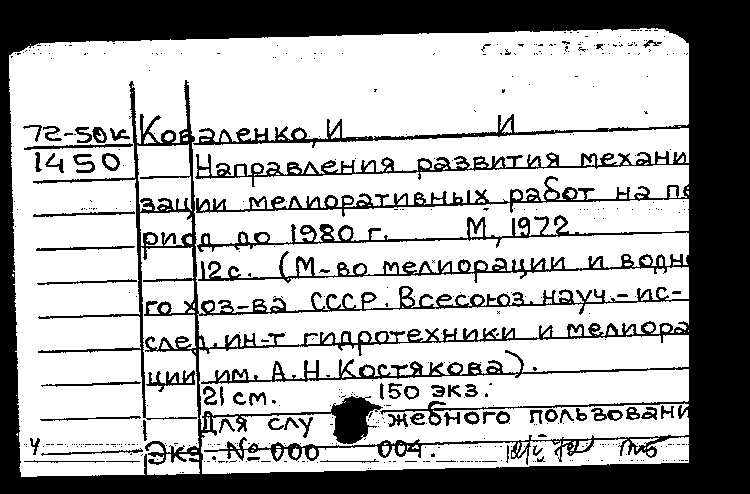 72-50к Коваленко, И И
1450 Направления развития механи
зации мелиоративных работ на пе
риод до 1980 г. М., 1972.
12с. (М-во мелиорации и водно
го хоз-ва СССР. Всесоюз. науч.-ис-
след. ин-т гидротехники и мелиора
ции им. А.Н.Костякова).
21 см. 150 экз.
Для слу жебного пользовани
Экз. № 000 004.